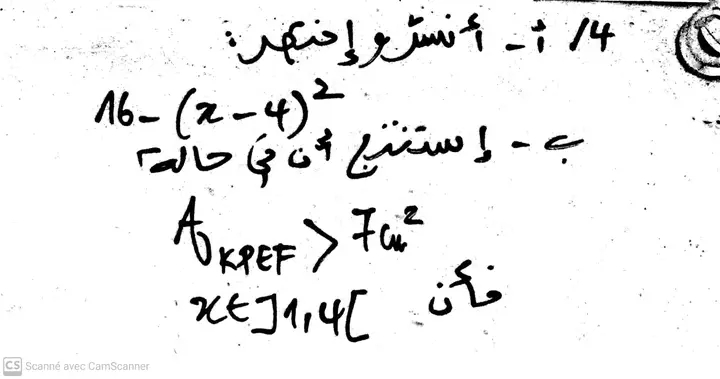 4/ أ - أنشر و إختصر:
16 - (x - 4)²
ب - إستنتج أن في حالة
A_KPEF > 7cm²
فأن x ∈ ]1,4[
CS Scanné avec CamScanner